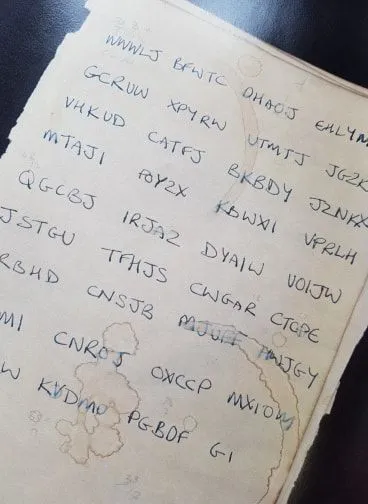 WWWLJ BFWTC DHAOJ EHLYM
GCRUW XPYRW UTMTJ JGZK
VHKUD CATFJ BKBDY JZNKX
MTAJI KDWXI VPRLH
QGCBJ IRJAZ DYAIW VOIJW
JSTGU TFHJS CWGAR CTQPE
RBHD CNSJB HWJGY
MI CNROJ OXCCP MXIOW
W KVDMU PGBOF GI